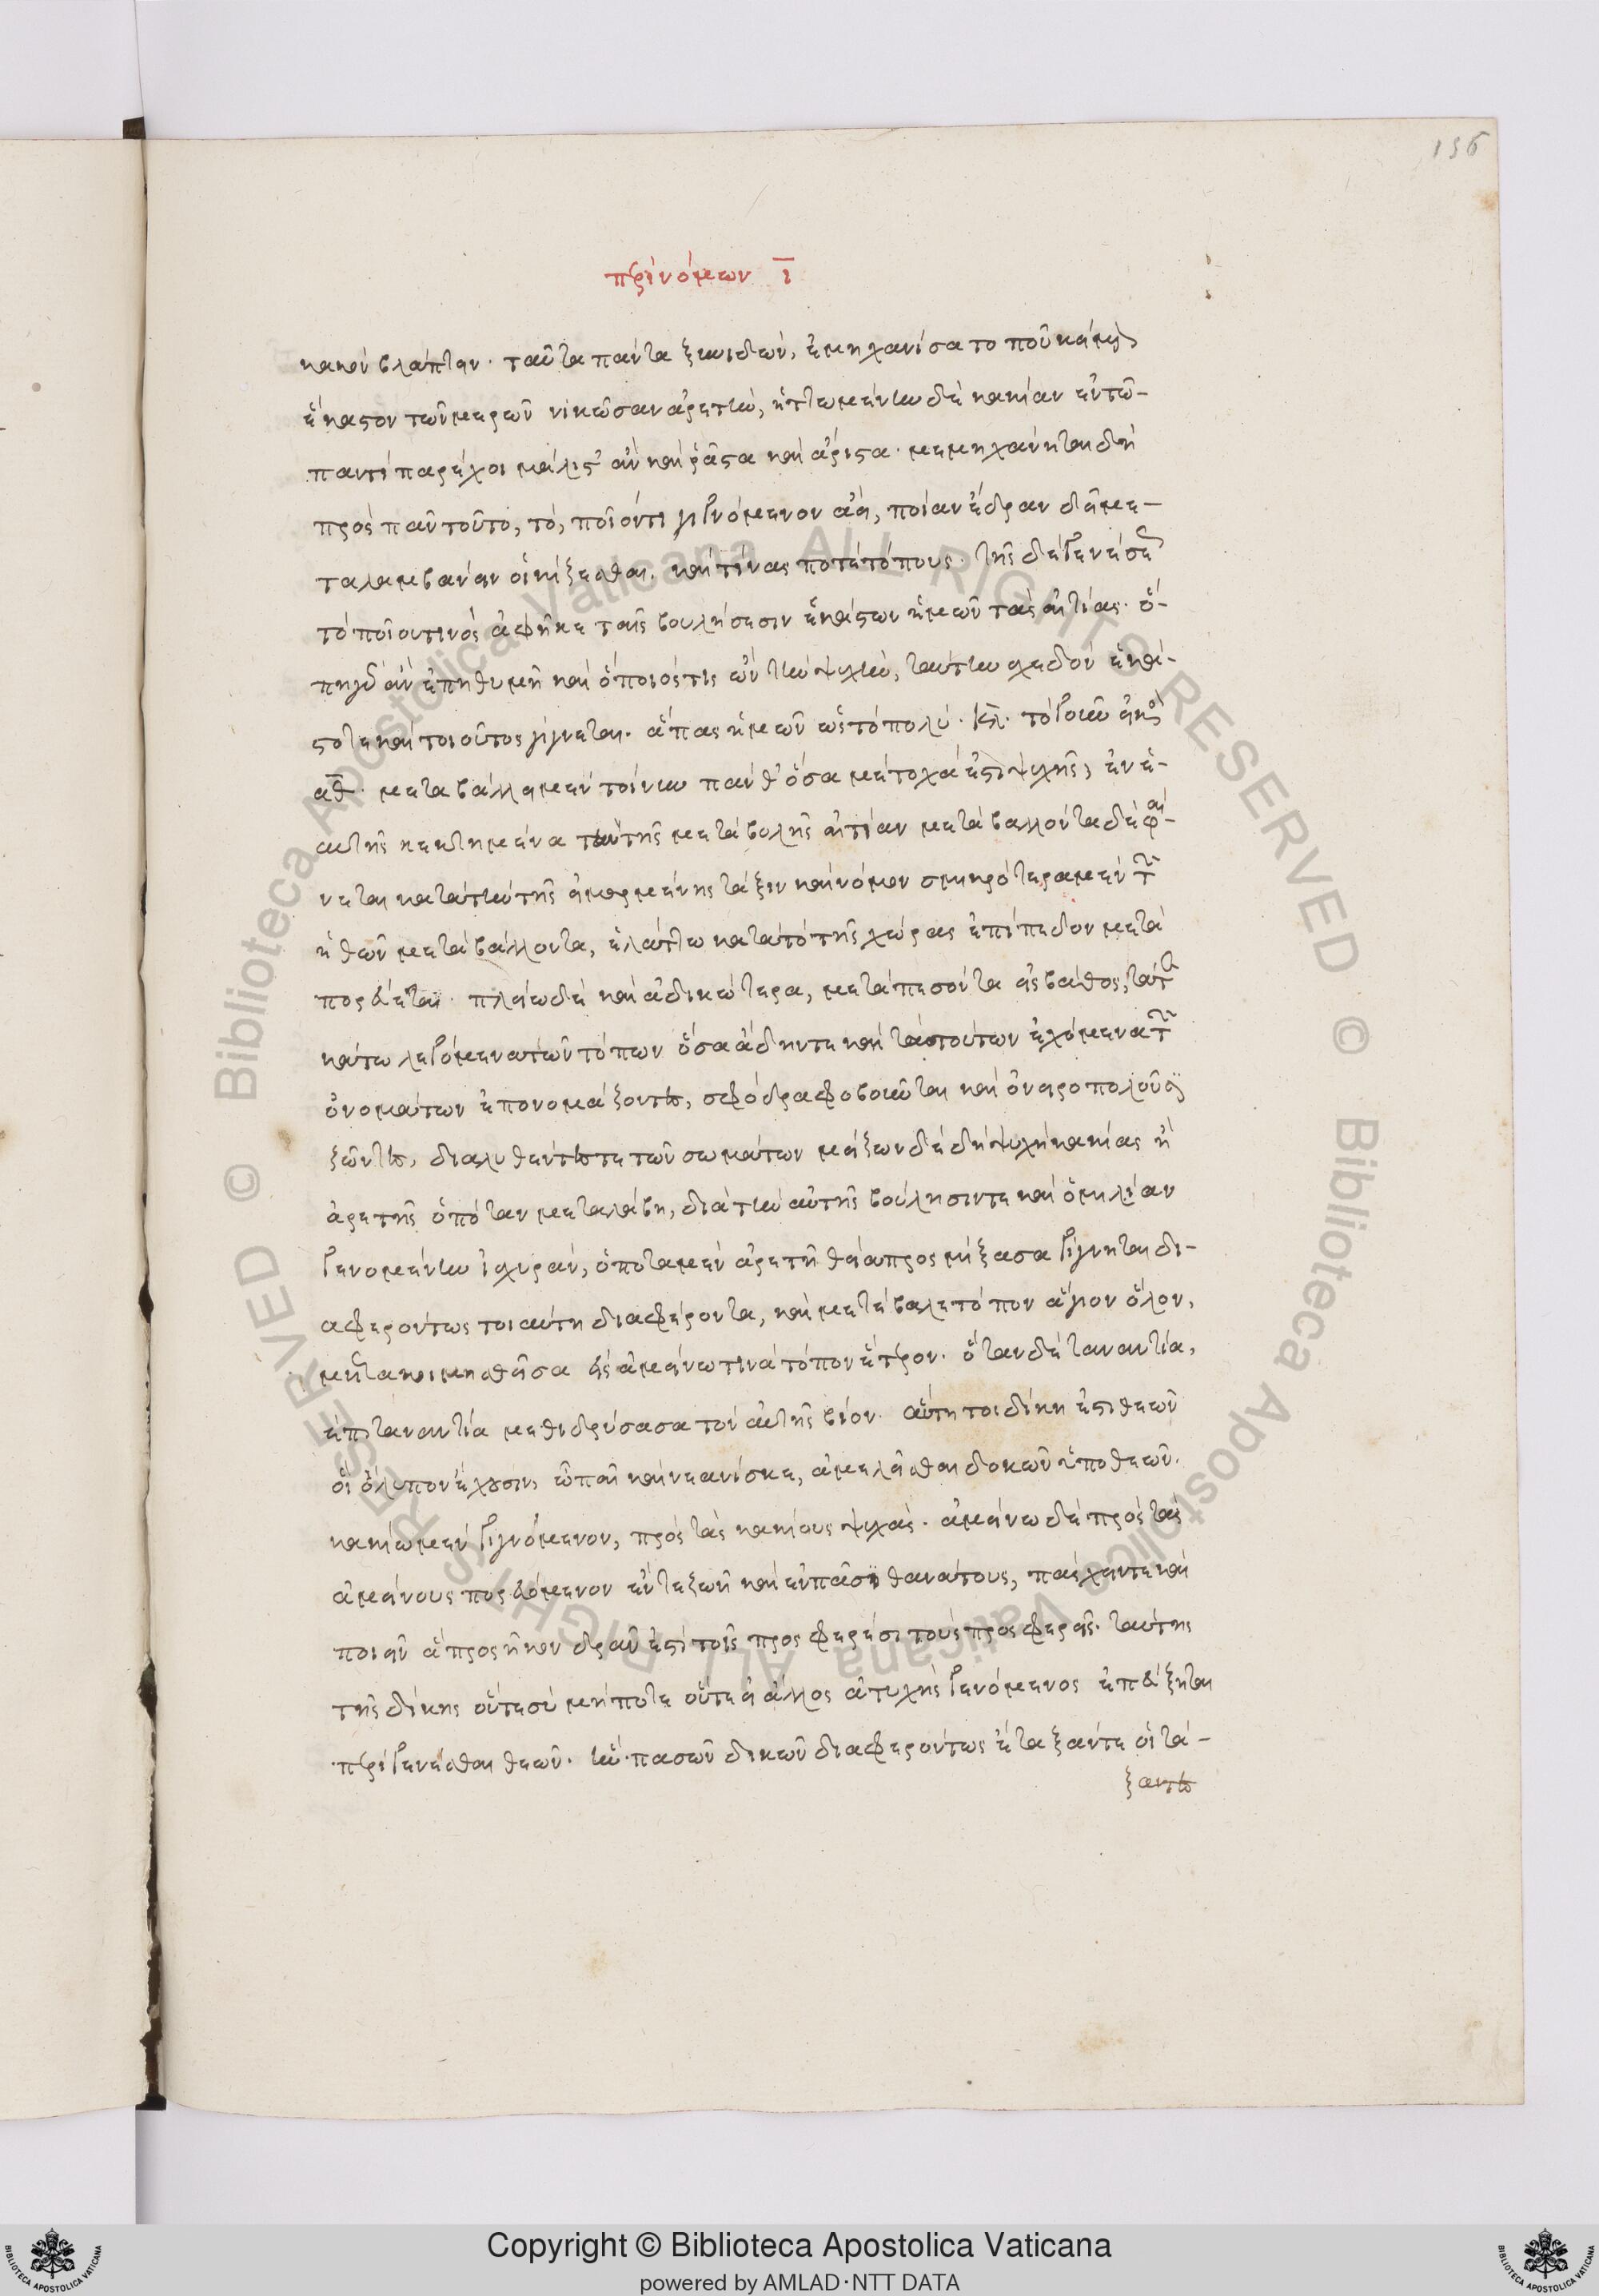 156
περὶ νόμων ῑ
κακὸν βλάπτειν. ταῦτα πάντα ξυνιδὼν, ἐμηχανήσατο ποῦ κείμενον
ἕκαστον τῶν μερῶν νικῶσαν ἀρετὴν, ἡττωμένην δὲ κακίαν ἐν τῶ
παντὶ παρέχοι μάλιστ' ἂν καὶ ῥᾶστα καὶ ἄριστα. μεμηχάνηται δὴ
πρὸς πᾶν τοῦτο, τὸ, ποῖόν τι γιγνόμενον ἀεὶ, ποίαν ἕδραν δεῖ με-
ταλαμβάνειν οἰκίζεσθαι. καὶ τίνας ποτὲ τόπους. τῆς δὲ γενέσεως
τὸ ποίου τινὸς ἀφῆκε ταῖς βουλήσεσιν ἑκάστων ἡμῶν τὰς αἰτίας. ὅ-
πη γὰρ ἂν ἐπιθυμῆ καὶ ὁποῖός τις ὢν τὴν ψυχὴν, ταύτην σχεδὸν ἑκά-
στοτε καὶ τοιοῦτος γίγνεται. ἅπας ἡμῶν ὡς τὸ πολύ. κλ. τὸ γοῦν εἰκὸς
αθ. μεταβάλλει μὲν τοίνυν πάνθ' ὅσα μέτοχά ἐστι ψυχῆς, ἐν ἑ-
αυτοῖς κεκτημένα τὴν τῆς μεταβολῆς αἰτίαν μεταβάλλοντα δὲ φέ-
ρεται κατὰ τὴν τῆς εἱμαρμένης τάξιν καὶ νόμον σμικρότερα μὲν τῶν
ἠθῶν μεταβάλλοντα, ἐλάττω κατὰ τὸ τῆς χώρας ἐπίπεδον μετα
πορεύεται. πλείω δὲ καὶ ἀδικώτερα, μεταπεσόντα εἰς βάθος, τά τε
κάτω λεγόμενα τῶν τόπων ὅσα ἅδην τε καὶ τὰ τούτων ἐχόμενα τῶν
ὀνομάτων ἐπονομάζοντες, σφόδρα φοβοῦνται καὶ ὀνειροπολοῦσι
ζῶντες, διαλυθέντες τε τῶν σωμάτων μείζω δὲ δὴ ψυχὴ κακίας ἢ
ἀρετῆς ὁπόταν μεταλάβη, διὰ τὴν αὑτῆς βούλησίν τε καὶ ὁμιλίαν
γενομένην ἰσχυρὰν, ὁπόταν μὲν ἀρετῆ θεία προσμίξασα γίγνηται δι-
αφερόντως τοιαύτη διαφέροντα, καὶ μετέβαλε τόπον ἅγιον ὅλον,
μετακομισθεῖσα εἰς ἀμείνω τινὰ τόπον ἕτερον. ὅταν δὲ τἀναντία,
ἐπὶ τἀναντία μεθιδρύσασα τὸν αὑτῆς βίον. αὕτη τοι δίκη ἐστὶ θεῶν
οἳ ὄλυμπον ἔχουσιν, ὦ παῖ καὶ νεανίσκε, ἀμελεῖσθαι δοκῶν ὑπὸ θεῶν.
κακίω μὲν γιγνόμενον, πρὸς τὰς κακίους ψυχὰς. ἀμείνω δὲ πρὸς τὰς
ἀμείνους πορευόμενον ἔν τε ζωῆ καὶ ἐν πᾶσι θανάτοις, πάσχειν τε καὶ
ποιεῖν ἃ προσῆκον δρᾶν ἐστὶ τοῖς προσφερέσι τοὺς προσφερεῖς. ταύτης
τῆς δίκης οὔτε σὺ μήποτε οὔτε εἰ ἄλλος ἀτυχὴς γενόμενος ἐπεύξηται
περιγενέσθαι θεῶν. ἣν πασῶν δικῶν διαφερόντως ἔταξάν τε οἱ τά-
ξαντες
Copyright © Biblioteca Apostolica Vaticana
powered by AMLAD·NTT DATA